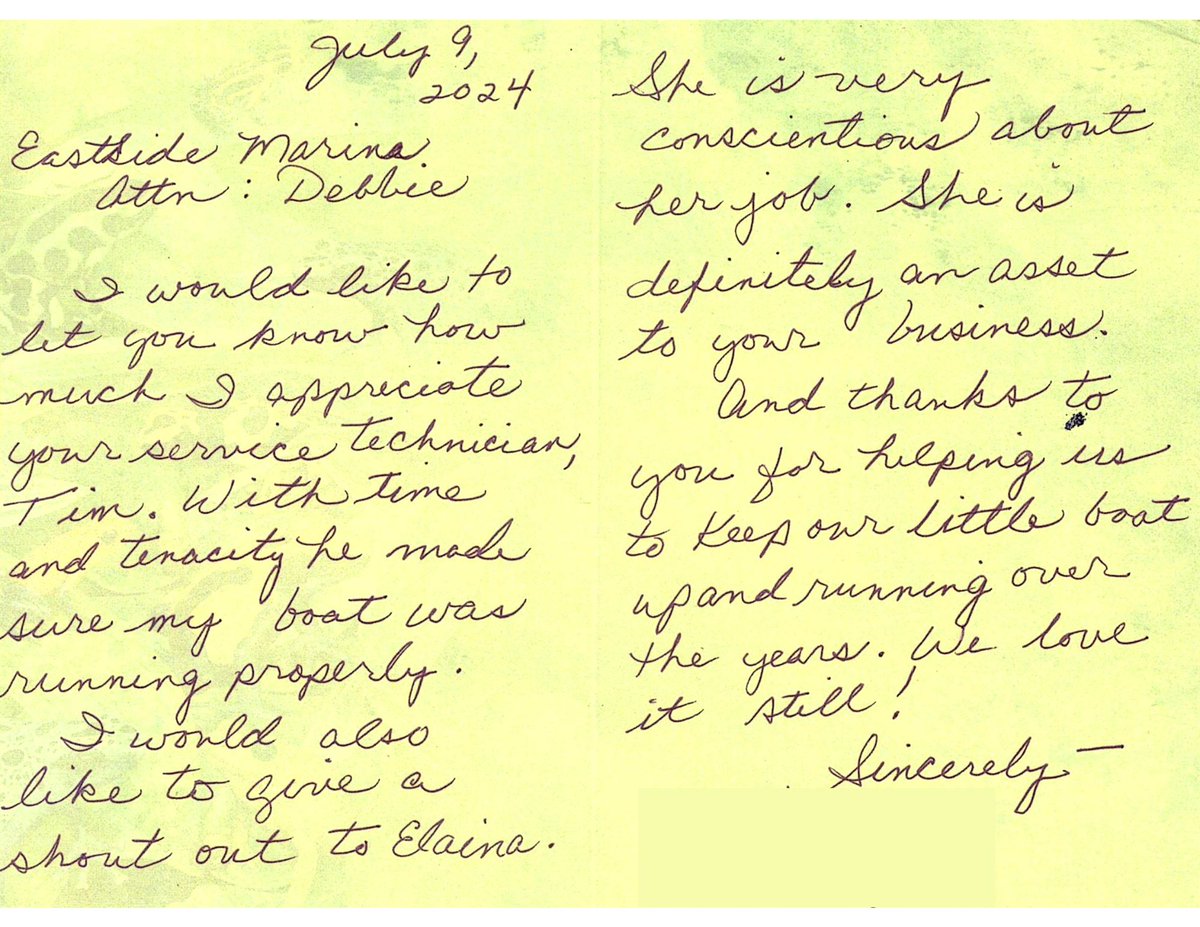 July 9,
2024
Eastside Marina
Attn: Debbie
I would like to
let you know how
much I appreciate
your service technician,
Tim. With time
and tenacity he made
sure my boat was
running properly.
I would also
like to give a
shout out to Elaina.
She is very
conscientious about
her job. She is
definitely an asset
to your business.
And thanks to
you for helping us
to keep our little boat
up and running over
the years. We love
it still!
Sincerely —